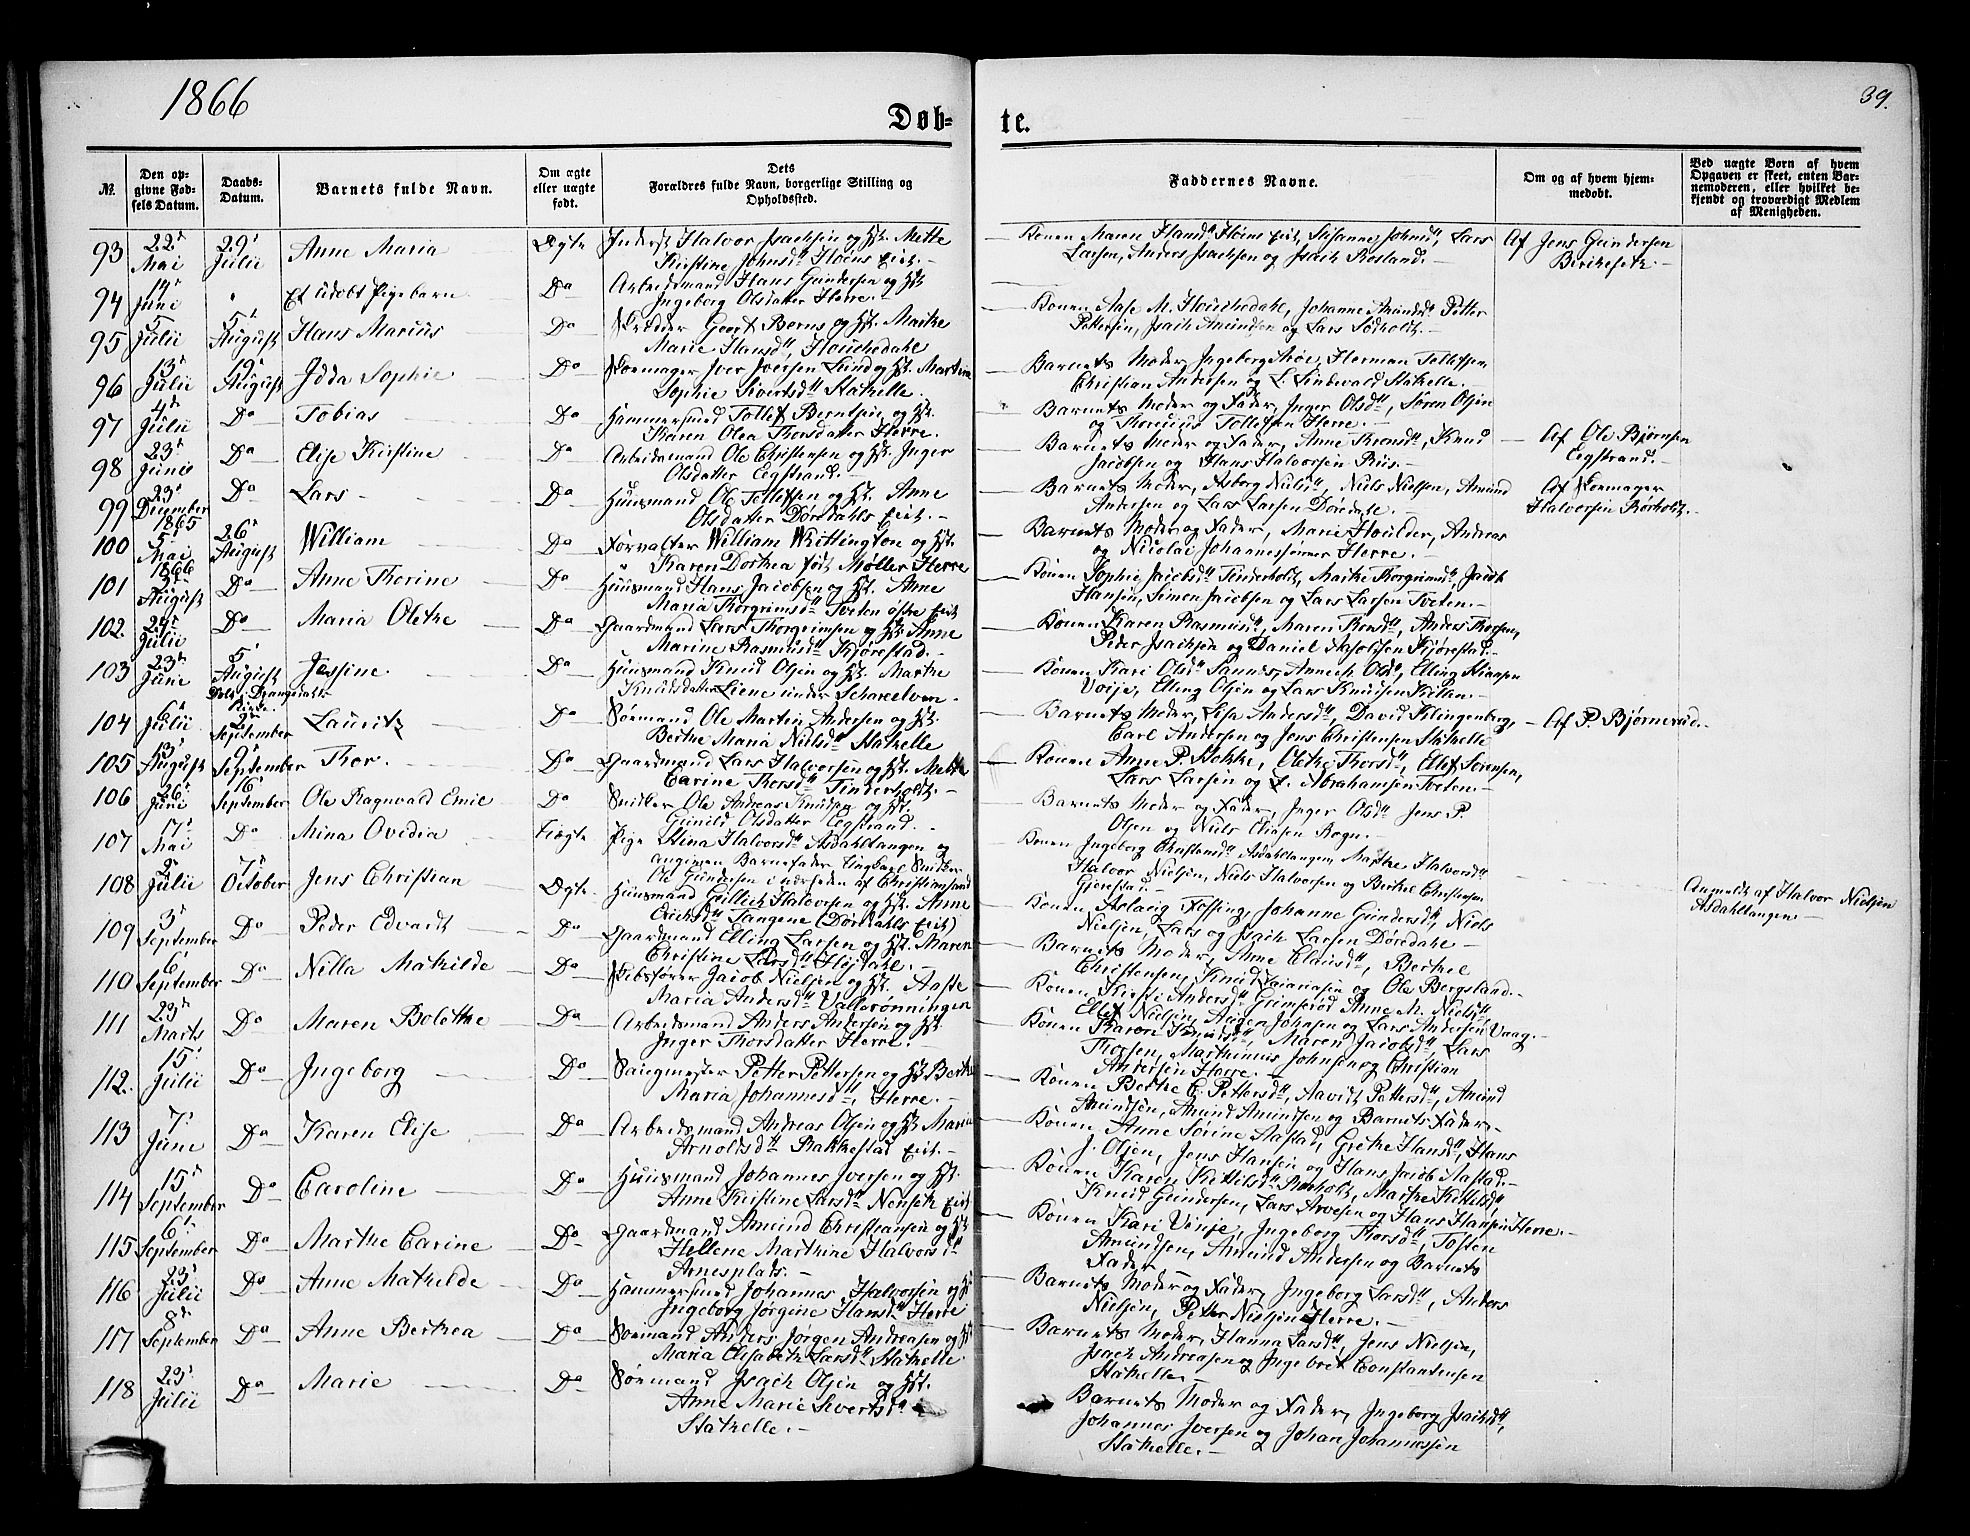 1866
39.
Døb-
te.
№.
Den op-
givne Fød-
sels Datum.
Daabs-
Datum.
Barnets fulde Navn.
Om ægte
eller uægte
født.
Dets
Forældres fulde Navn, borgerlige Stilling og
Opholdssted.
Faddernes Navne.
Om og af hvem hjem-
medøbt.
Ved uægte Børn af hvem
Opgaven er skeet, enten Bar-
nemoderen, eller hvilket be-
kjendt og troværdigt Medlem
af Menigheden.
93 22d Mai 29d Julii Anne Maria Ægte Inderst Halvor Isachsen og Hst. Mette
Kirstine Johnsd Hoens Eiet.
Konen Maren Hansd Hoens Eiet, Susanne Johnsd, Lars
Larsen, Anders Isachsen og Isach Rosland.
Af Jens Gundersen
94 14d Juni Et udøbt Pigebarn Do Arbeidsmand Hans Gundersen og Hst
Ingeborg Olsdatter Herre.
95 5 Julii 5 August Hans Marius Do Skredder Geert Berns og Hst. Marthe
Marie Hansd, Houchedahl
Konen Aase M. Houchedahl, Johanne Amundsd Petter
Pettersen, Isach Amundsen og Lars Rødholt.
96 13 Julii 19 August Idda Sophie Do Skomager Iver Iversen Lund og Hst. Martine
Sophie Sivertsd Stathelle.
Barnets Moder, Ingeborg Moe, Herman Tollefsen
Christian Andersen og L. Lindevald Stathelle.
97 4d Julii Do Tobias Do Hammersmed Tollef Berntsen og Hst.
Karen Olea Thorsdatter Herre.
Barnets Moder og Fader, Inger Olsd, Søren Olsen
og Tollefsen Herre.
98 23 Junii Do Elise Kirstine Do Arbeidsmand Ole Christensen og Hst. Inger
Olsdatter Eegstrand.
Barnets Moder og Fader, Anne Thorsd, Knud
Jacobsen og Hans Halvorsen Riis.
Af Ole Bjørnsen
Eegstrand.
99 23 December 1865 Do Lars Do Huusmand Ole Tollefsen og Hst. Anne
Olsdatter Dørdahls Eiet.
Barnets Moder, Asborg Nielsd, Niels Nielsen, Amund
Andersen og Lars Larsen Dørdahl.
Af Skomager
Halvorsen Rørholt.
100 5 Mai 1866 26 August William Do Forvalter William Whittington og Hst.
Karen Dorthea født Møller Herre
Barnets Moder og Fader, Marie Houlder, Andreas
og Nicolai Johannessønner Herre.
101 3 August Do Anne Thorine Do Huusmand Hans Jacobsen og Hst. Anne
Maria Thorgrimsd Tveten østre Eiet
Konen Sophie Jacobsd Tinderholt, Marthe Thorgrimsd, Jacob
Hansen, Simon Jacobsen og Lars Larsen Tveten.
102. 29 Julii Do Maria Olethe Do Gaardmand Lars Thorgrimsen og Hst. Anne
Marine Rasmusd Kjørestad.
Konen Karen Rasmusd, Maren Thorsd, Anders Thorsen,
Peder Isachsen og Daniel Kjørestad.
103 23d June 5 August Døbt i Drangedals Kirke. Jessine Do Huusmand Knud Olsen og Hst. Marthe
Knudsdatter Liene under
Konen Kari Olsd Sannes, Anne M. Olsd, Elling
Voije, Elling Olsen og Lars Knudsen
104 6 Julii 2d September Lauritz Do Sømand Ole Martin Andersen og Hst.
Berthe Maria Nielsd Stathelle
Barnets Moder, Lise Andersd, David Klingenberg,
Carl Andersen og Jens Christensen Stathelle
Af P. Bjørnerud.
105 13 August 9 September Thor. Do Gaardmand Lars Halvorsen og Hst. Mette
Carine Thorsd Tinderholt.
Konen Anne P. Stokke, Olethe Thorsd, Ellef Sørensen,
Lars Larsen og Z. Abrahamsen Tveten.
106 26 Juni 16 September Ole Ragnvald Emil Do Snedker Ole Andreas Knudsen og Hst.
Gunild Olsdatter Eegstrand.
Barnets Moder og Fader, Inger Olsd Jens P.
Olsen og Niels Eliasen Rogn.
107 17 Mai Do Mina Ovidia Uægte Pige Stina Halvorsd Asdahltangen og
angiven Barnefader Ungkarl Snedker
Ole Gundersen i nærheden af Christiansand
Konen Ingeborg Christensd Asdahltangen, Marthe Halvorsd
Halvor Nielsen, Niels Halvorsen og Berthel Christensen
Gjerestad
Anmeldt af Halvor Nielsen
Asdahltangen
108 2 Julii 7 October Jens Christian Ægte. Huusmand Gullich Halvorsen og Hst. Anne
Erichsd Tangene (Dørdahls Eiet)
Konen Aslaug Fossing, Johanne Gundersd, Niels
Nielsen, Lars og Isach Larsen Dørdahl
109 3 September Do Peder Edvardt Do Gaardmand Elling Larsen og Hst. Maren
Christine Larsd Højdahl.
Barnets Moder, Anne Clausd, Berthel
Christensen, Knud Zachariasen og Ole Bergsland.
110 6 September Do Nilla Mathilde Do Skibsfører Jacob Nielsen og Hst. Aaste
Maria Andersd Vallerønningen
Konen Kirsti Andersd Grimsrød Anne M. Nielsd,
Ellef Nielsen, Johnsen og Lars Andersen Vaag.
111 23d Marts Do Maren Bolethe Do Arbeidsmand Anders Andersen og Hst
Inger Thorsdatter Herre.
Konen Karen Knudsd, Maren Jacobsd, Lars
Thorsen, Marthinus Johnsen og Christian
Andersen Herre.
112. 15 Julii Do Ingeborg Do Saugmester Petter Pettersen og Hst Berthe
Maria Johannesd, Herre.
Konen Berthe C. Pettersd, Navida Pettersd, Amund
Amundsen, Amund Amundsen og Barnets Fader.
113 7 June Do Karen Elise Do Arbeidsmand Andreas Olsen og Hst. Maria
Arnoldsd Rakkestad Eiet.
Konen Anne Sørine Aastad, Grethe Hansd, Hans
J. Olsen, Jens Hansen og Hans Jacob Aastad.
114 15 September Do Caroline Do Huusmand Johannes Iversen og Hst.
Anne Kirstine Larsd Nenseth Eiet
Konen Karen Kittilsd Rørholt, Marthe Kittilsd,
Knud Gundersen, Lars Arvesen og Hans Hansen Herre.
115 6 September Do Marthe Carine Do Gaardmand Amund Christiansen og Hst
Hellene Marthine Halvorsd
Arnesplads.
Konen Kari Vinje, Ingeborg Thorsd, Tosten
Amundsen, Amund Andersen og Barnets
Fader
116 23 Julii Do Anne Mathilde Do Hammersmed Johannes Halvorsen og Hst
Ingeborg Jørgine Hansd Herre
Barnets Moder og Fader, Ingeborg Larsd, Anders
Nielsen, Petter Nielsen Herre.
117 8d September Do Anne Berthea Do Sømand Anders Jørgen Andreasen og Hst
Maria Elisabeth Larsd Stathelle
Barnets Moder, Hanna Larsd, Jens Nielsen,
Isach Andreasen og Ingebret Constantinsen
Stathelle.
118 23 Julii Do Marie Do Sømand Isach Olsen og Hst.
Anne Marie Sivertsd
Stathelle.
Barnets Moder og Fader, Ingeborg Isachsd,
Johannes Iversen og Johan Johannessen
Stathelle.